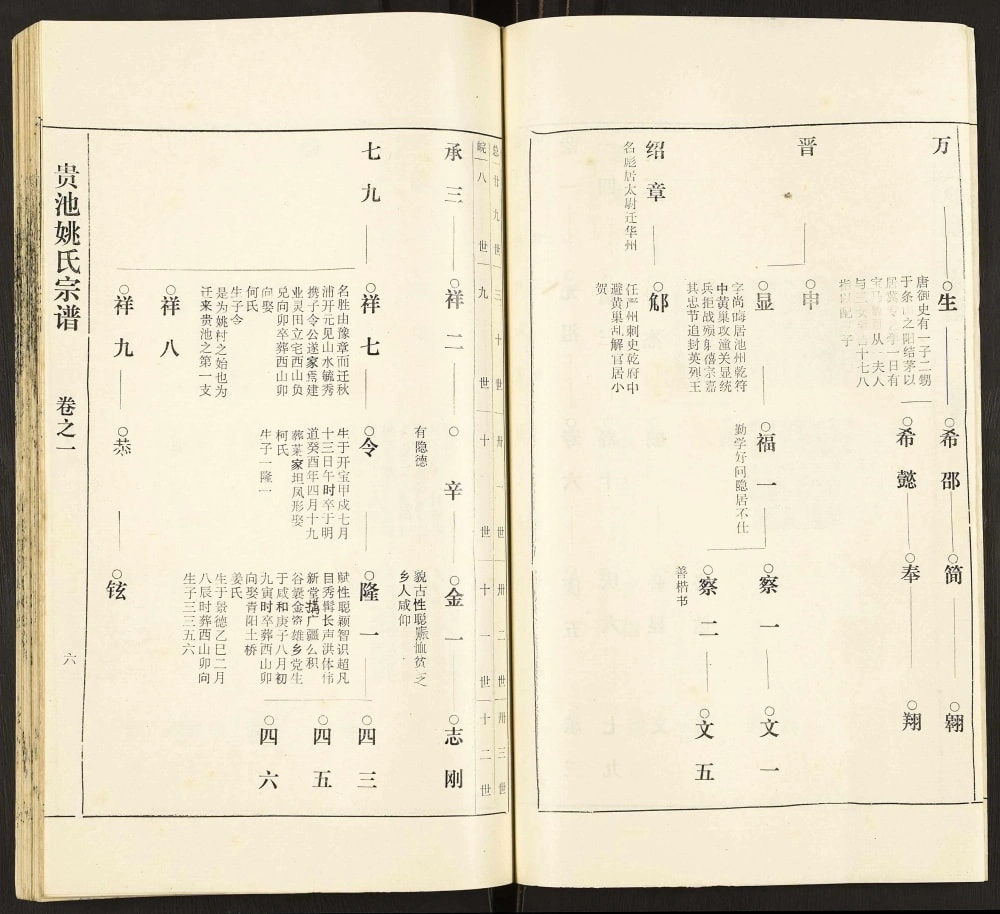 万
生
唐御史有一子二甥
于条山之阳结茅以
一日有
从一夫人
希邵
简
翱
希懿
奉
翔
晋
申
显
字尚晦居池州乾符
中黄巢攻潼关显统
兵拒战殁身僖宗嘉
其忠节追封英烈王
福一
勤学好问隐居不仕
察一
文一
察二
善楷书
文五
绍章
名彪居太尉迁华州
邠
汪严州刺史乾府中
避黄巢乱解官居小
贺
总廿九世 三十世 卅一世 卅二世 卅三世
皖八世 九世 十世 十一世 十二世
承三
祥二
辛
有隐德
金一
貌古性聪恤贫之
乡人咸仰
志刚
七九
祥七
名胜由豫章而迁秋
浦开元见山水毓秀
携子令公遂家焉建
业灵田立宅西山负
兑向卯卒葬西山卯
向娶
何氏
生子令
是为姚村之始也为
迁来贵池之第一支
令
生于开宝甲戌七月
十三日午时卒于明
道癸酉年四月十九
葬莱家坦凤形娶
柯氏
生子一隆一
隆一
赋性聪颖智识超凡
目秀髯长声洪体伟
新堂构广疆么积
谷囊金资雄乡党生
于咸和庚子八月初
九寅时卒葬西山卯
向娶青阳土桥
姜氏
生于景德乙巳二月
八辰时葬西山卯向
生子三三五六
四三
四五
四六
祥八
祥九
恭
铉
贵池姚氏宗谱
卷之一
六